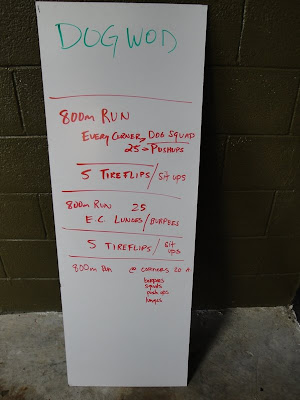 DOG WOD
800m RUN
EVERY CORNER, DOG SQUAD
25 → PUSHUPS
5 TIREFLIPS/SIT UPS
800m RUN 25
E.C. LUNGES/BURPEES
5 TIREFLIPS/SIT UPS
800m RUN @ CORNERS 20 #
burpees
squats
push ups
lunges